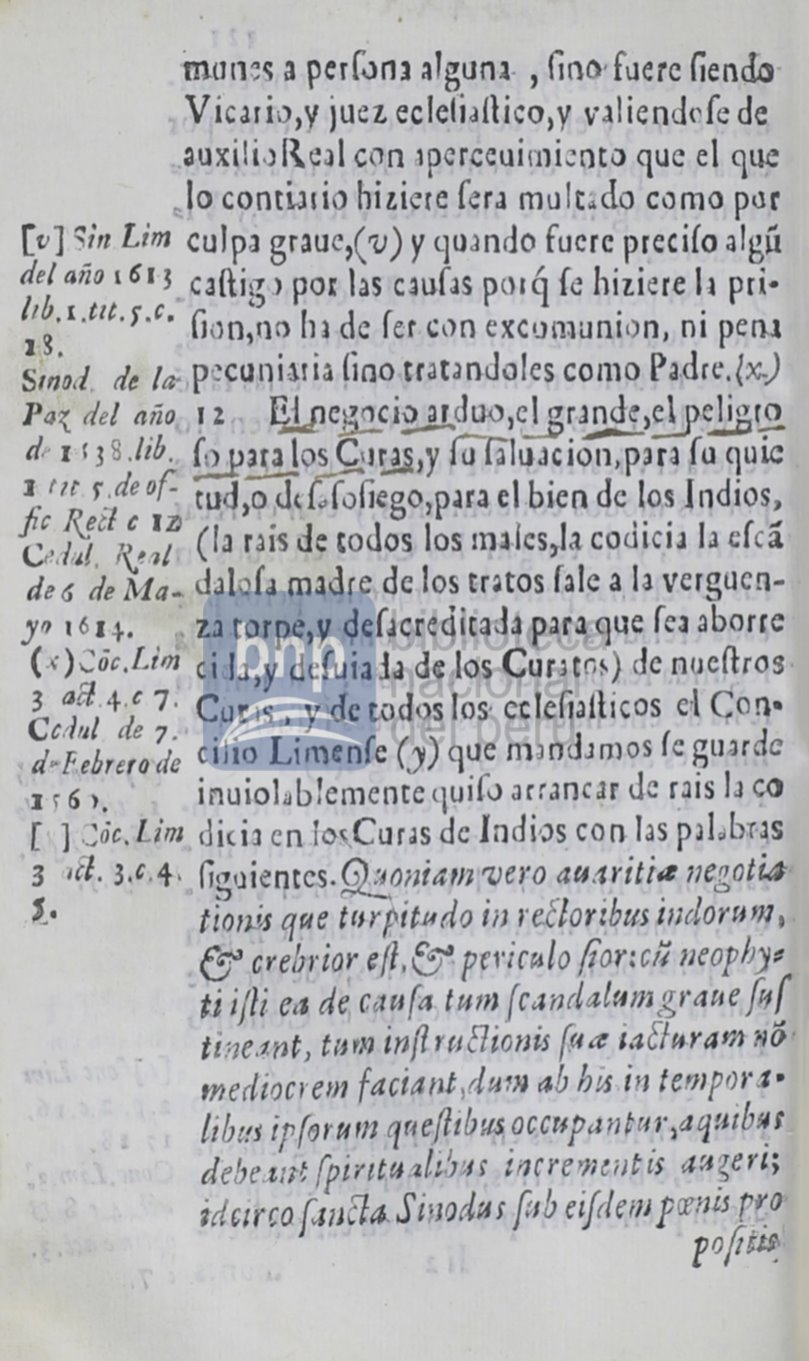 munes a perſona alguna , ſino fuere ſiendo
Vicario,y juez ecleſiaſtico,y valiendoſe de
auxilio Real con aperceuimiento que el que
lo contrario hiziere ſera multado como por
culpa graue,(v) y quando fuere preciſo algũ
caſtigo por las cauſas porq́ ſe hiziere la pri-
ſion,no ha de ſer con excomunion, ni pena
pecuniaria ſino tratandoles como Padre.(x)
12 El negocio arduo,el grande,el peligro
ſo para los Curas,y ſu ſaluacion,para ſu quie
tud,o deſaſoſiego,para el bien de los Indios,
(la rais de todos los males,la codicia la eſcã
daloſa madre de los tratos ſale a la verguen-
za torpe,y deſacreditada para que ſea aborre
cida,y deſuiada de los Curatos) de nueſtros
Curas, y de todos los ecleſiaſticos el Con-
cilio Limenſe (y) que mandamos ſe guarde
inuiolablemente quiſo arrancar de rais la co
dicia en los Curas de Indios con las palabras
ſiguientes. Quoniam vero auaritiæ negotia
tionis que turpitudo in rectoribus indorum,
& crebrior eſt, & periculo ſior: cũ neophy-
ti iſti ea de cauſa tum ſcandalum graue ſuſ
tineant, tum inſtructionis ſuæ iacturam nõ
mediocrem faciant, dum ab his in tempora-
libus ipſorum queſtibus occupantur, a quibus
debeant ſpiritualibus incrementis augeri;
idcirco ſancta Sinodus ſub eiſdem pœnis pro
poſitis
[v] Sin Lim
del año 1613
lib.1.tit.5.c.
18.
Sinod. de la
Paz del año
de 1638.lib.
1 tit 5.de of-
fic Rect c 12
Cedul. Real
de 6 de Ma-
yo 1614.
(x) Cõc.Lim
3 act.4.c 7.
Cedul de 7.
de Febrero de
156
[ ] Cõc.Lim
3 act. 3.c.4.
5.
bnp
biblioteca
nacional
del perú